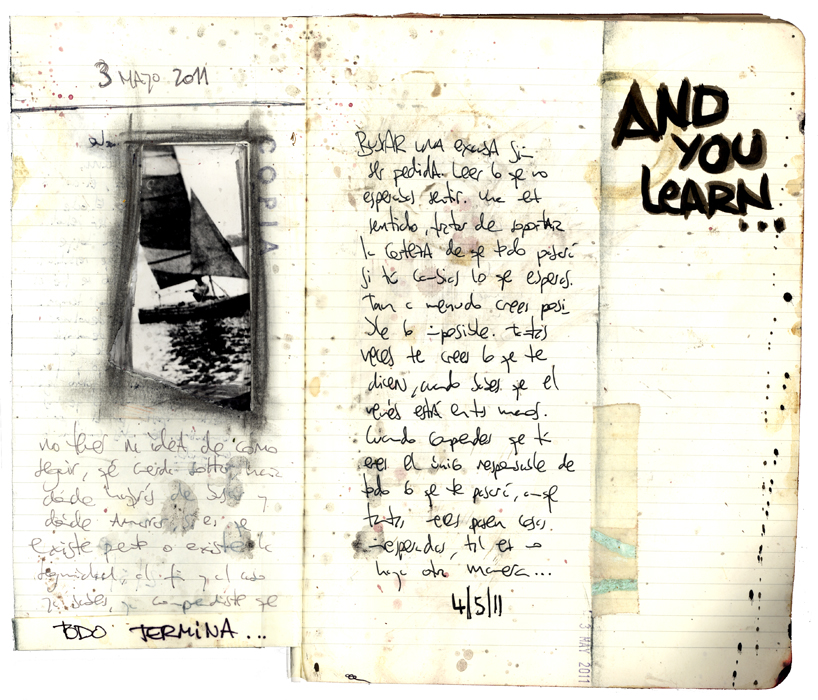 3 MAYO 2011
COPIA
no tener ni idea de como
seguir, qué cuerda soltar, hacia
dónde huyes de y
dónde si es que
existe puerto o existe la
seguridad, al fin y al cabo
ya sabes, ya comprendiste que
TODO TERMINA...
BUSCAR UNA EXCUSA Sin
ser pedida. Leer lo que no
esperabas sentir.
sentido, tratar de soportar
la certeza de que todo pasará
si tú cambias lo que esperas.
Tan a menudo crees posi
ble lo imposible. tantas
veces te crees lo que te
dicen, cuando sabes que el
revés está en tus manos.
Cuando comprendes que tú
eres el único responsable de
todo lo que te pasará, aunque
tantas veces pasen cosas
inesperadas, tal vez no
haya otra manera...
4/5/11
3 MAY 2011
AND
YOU
LEARN...